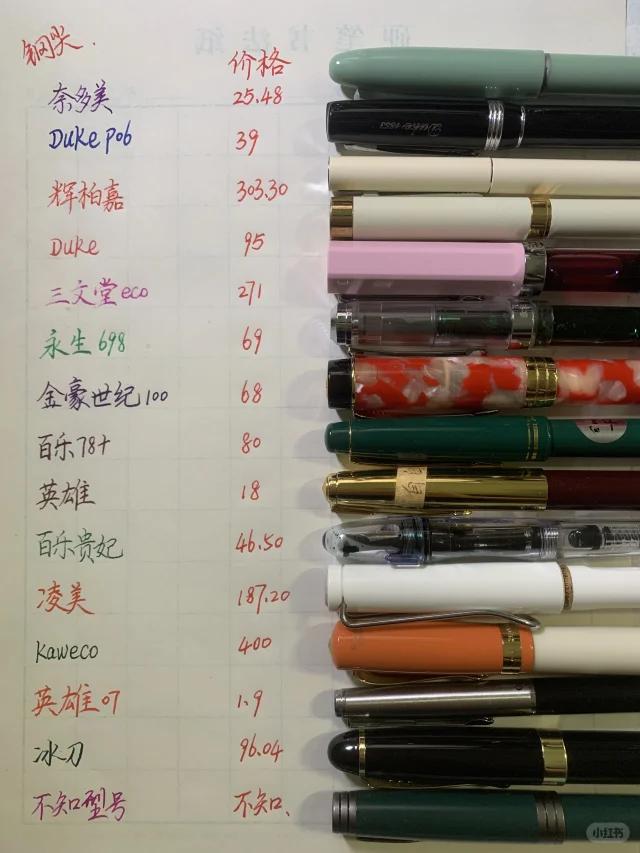 钢尖.
价格
奈多美 25.48
Duke p06 39
辉柏嘉 303.30
Duke 95
三文堂eco 271
永生698 69
金豪世纪100 68
百乐78+ 80
英雄 18
百乐贵妃 46.50
凌美 187.20
Kaweco 400
英雄07 1.9
冰刀 96.04
不知型号 不知、
小红书